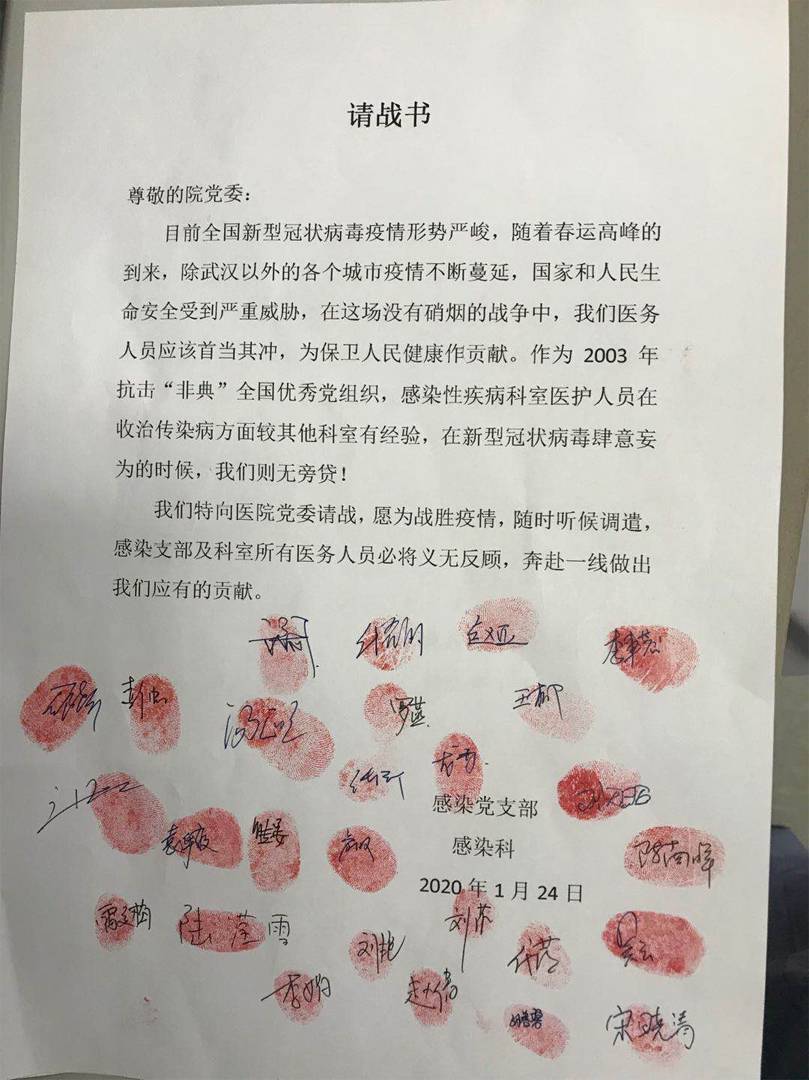 请战书
尊敬的院党委：
目前全国新型冠状病毒疫情形势严峻，随着春运高峰的
到来，除武汉以外的各个城市疫情不断蔓延，国家和人民生
命安全受到严重威胁，在这场没有硝烟的战争中，我们医务
人员应该首当其冲，为保卫人民健康作贡献。作为 2003 年
抗击“非典”全国优秀党组织，感染性疾病科室医护人员在
收治传染病方面较其他科室有经验，在新型冠状病毒肆意妄
为的时候，我们则无旁贷！
我们特向医院党委请战，愿为战胜疫情，随时听候调遣，
感染支部及科室所有医务人员必将义无反顾，奔赴一线做出
我们应有的贡献。
罗燕
王郁
感染党支部
感染科
2020 年 1 月 24 日
刘艳
刘苏
赵倩
宋晓涛